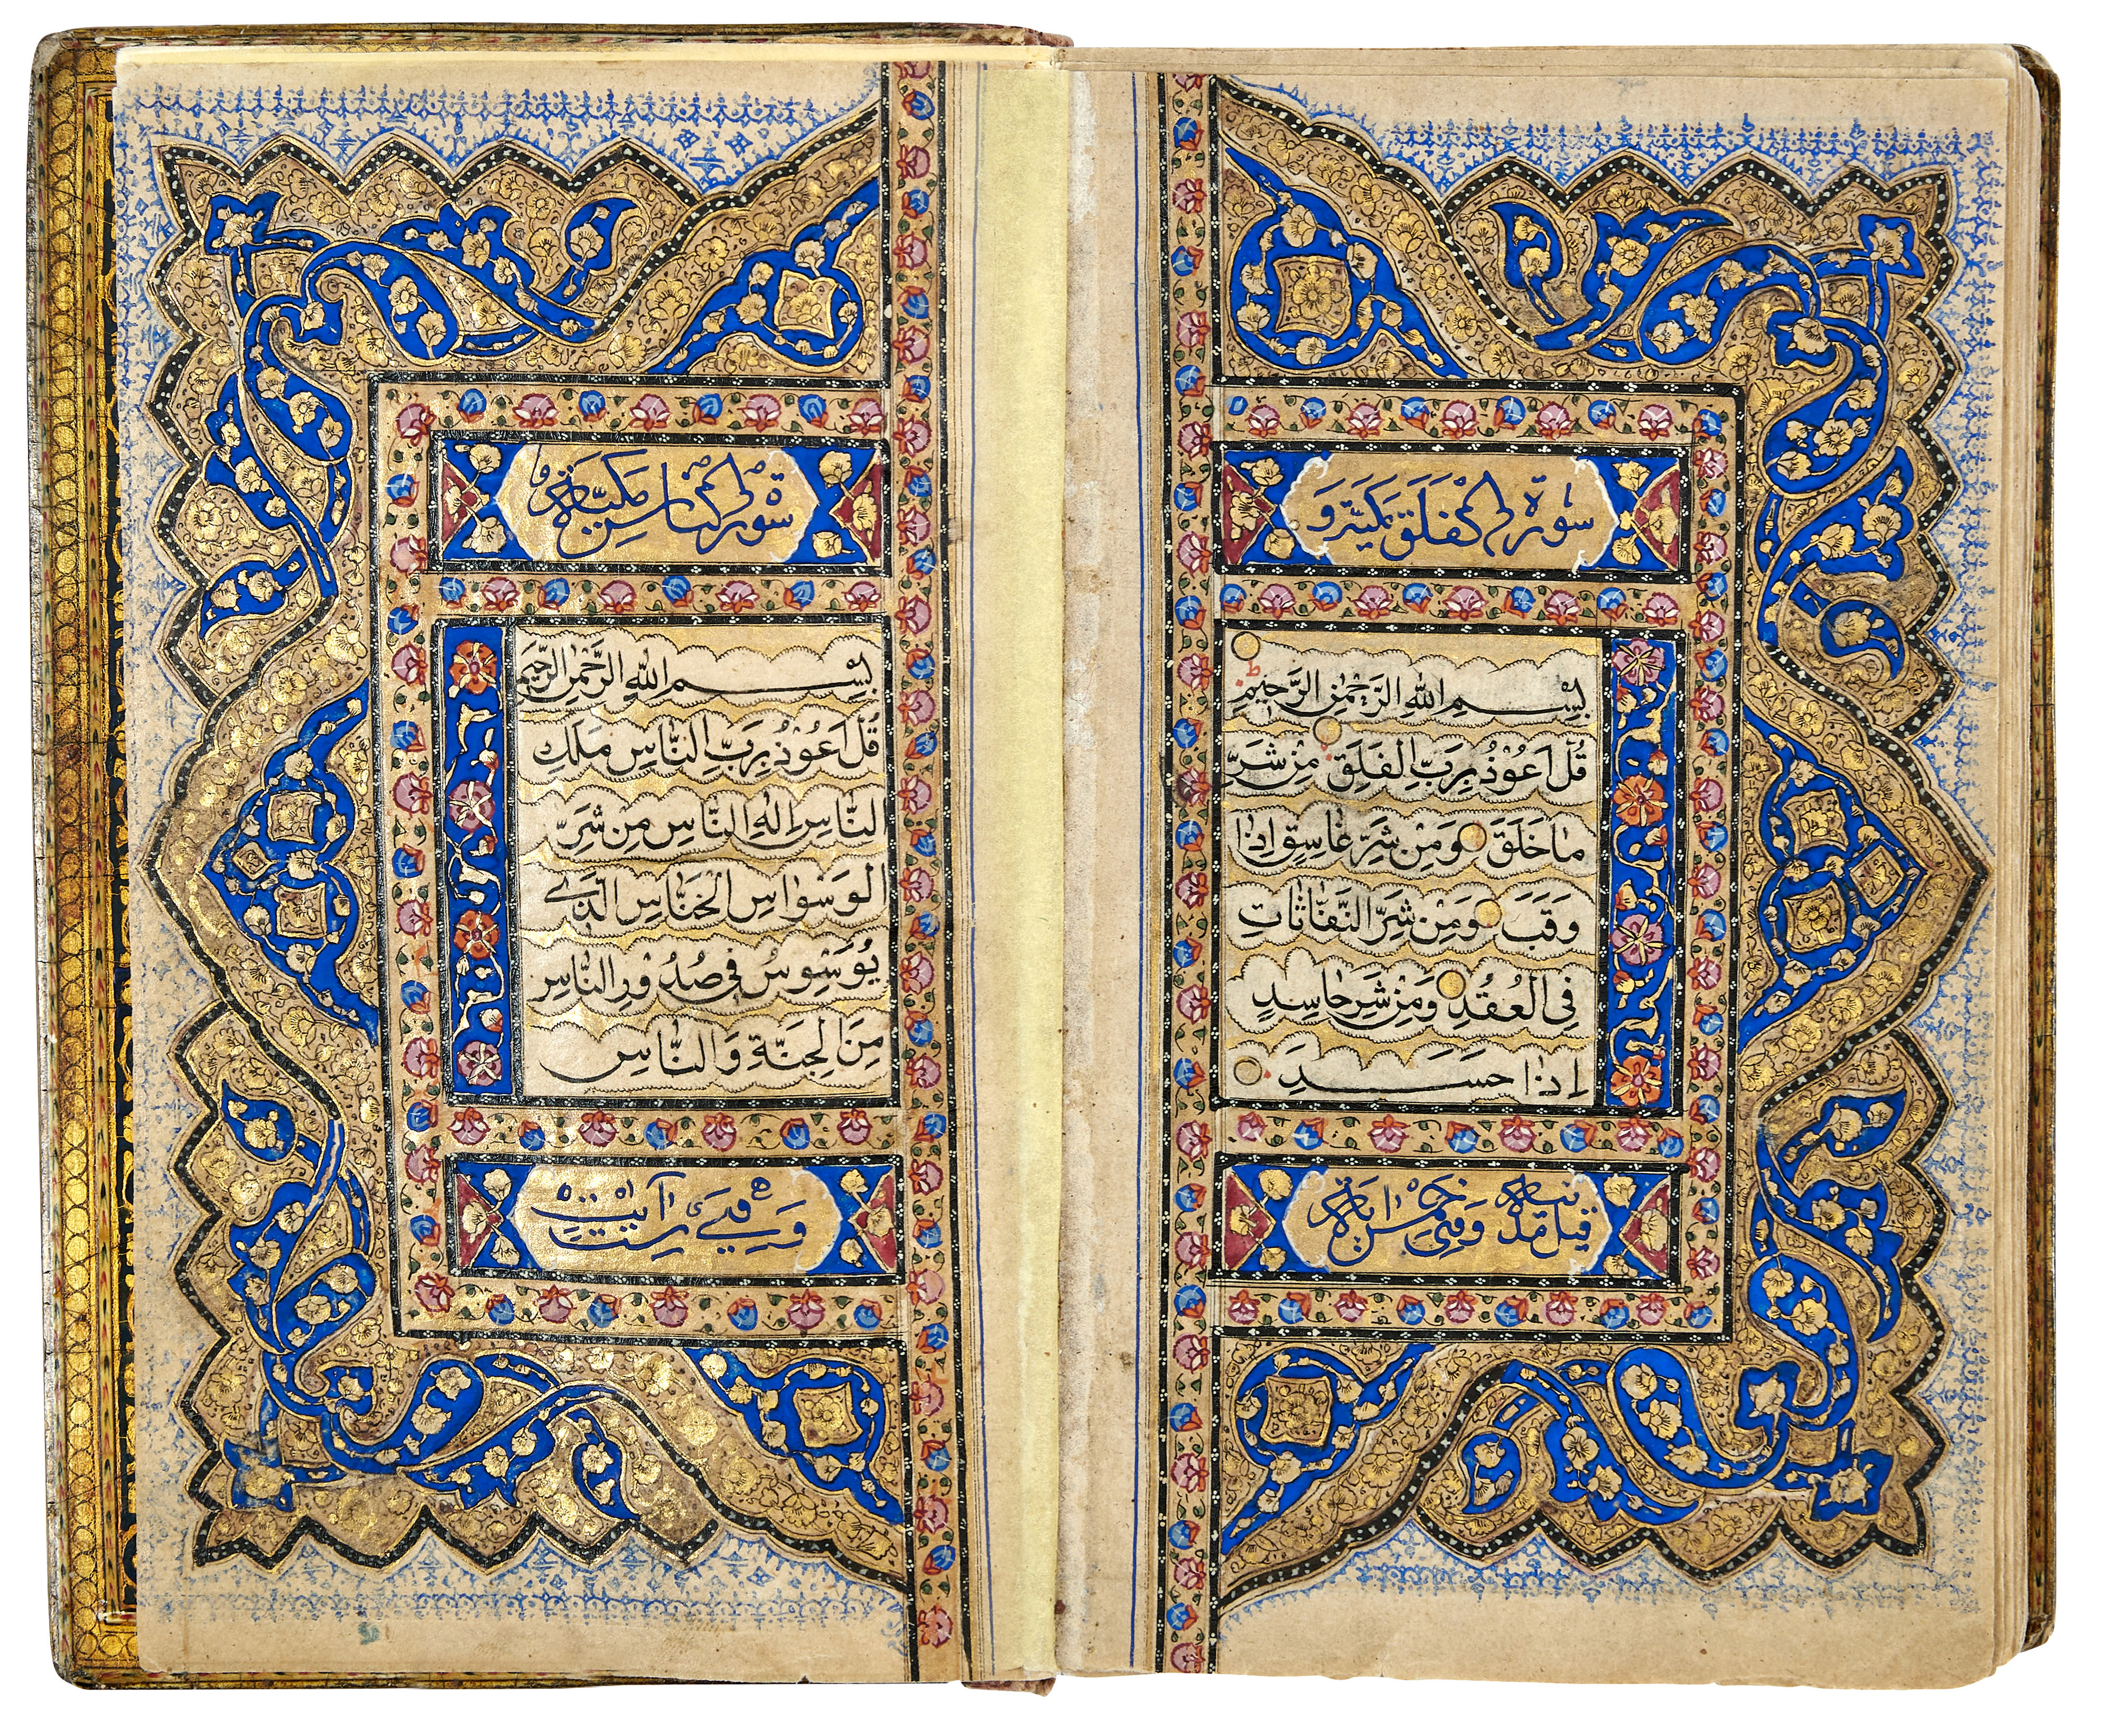 سورة الفلق مكية و
بِسْمِ اللهِ الرَّحْمٰنِ الرَّحِيمِ
قُلْ اَعُوْذُ بِرَبِّ الْفَلَقِ مِنْ شَرِّ
مَا خَلَقَ وَمِنْ شَرِّ غَاسِقٍ اِذَا
وَقَبَ وَمِنْ شَرِّ النَّفّٰاثٰاتِ
فِي الْعُقَدِ وَمِنْ شَرِّ حٰاسِدٍ
اِذٰا حَسَدَ
قيل مدنية وهي خمس آيات
سورة الناس مكية
بِسْمِ اللهِ الرَّحْمٰنِ الرَّحِيمِ
قُلْ اَعُوْذُ بِرَبِّ النَّاسِ مَلِكِ
النَّاسِ اِلٰهِ النَّاسِ مِنْ شَرِّ
الْوَسْوٰاسِ الْخَنَّاسِ الَّذِي
يُوَسْوِسُ فِي صُدُوْرِ النَّاسِ
مِنَ الْجِنَّةِ وَالنَّاسِ
آيات